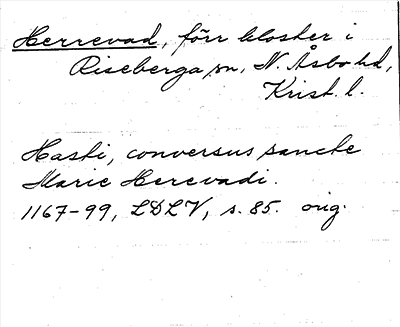 Herrevad, förr kloster i
Riseberga sn, N. Åsbo hd,
Krist. l.
Haski, conversus sancte
Marie Herevadi.
1167-99, LDLV, s. 85. orig.